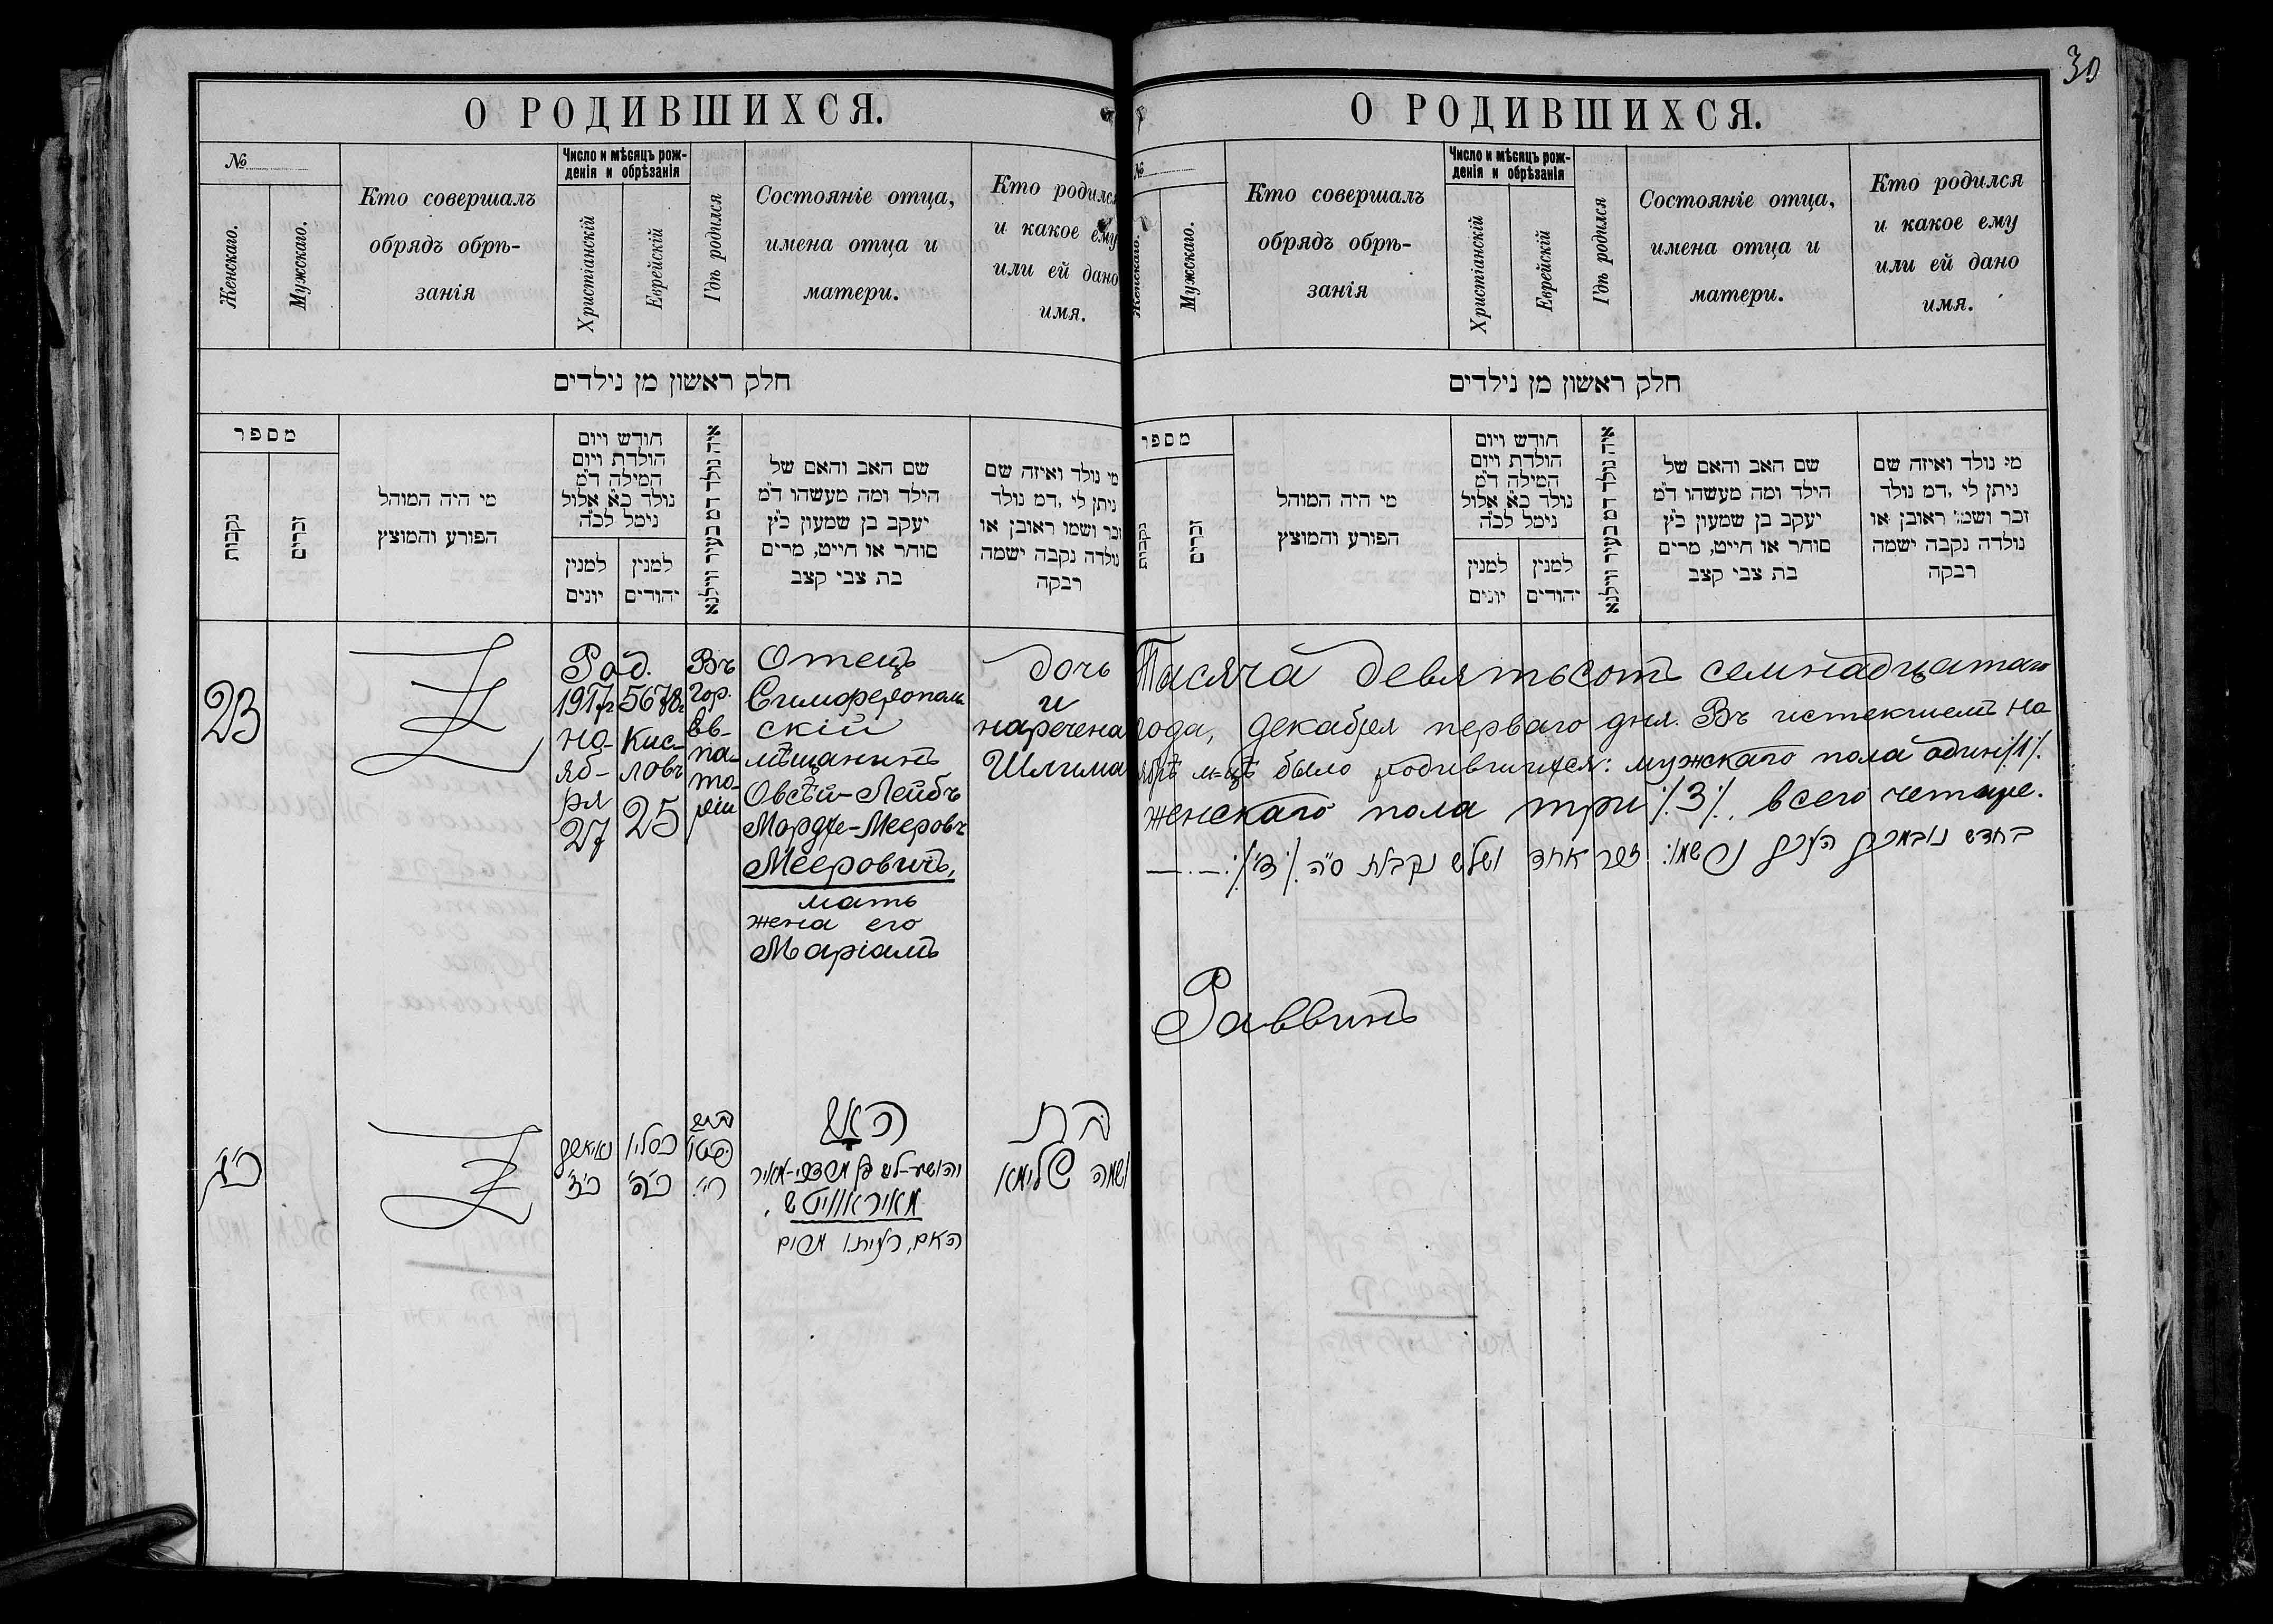 30
О РОДИВШИХСЯ.
№
Женскаго.
Мужскаго.
Кто совершалъ
обрядъ обрѣ-
занія
Число и мѣсяцъ рож-
денія и обрѣзанія
Христіанскій
Еврейскій
Гдѣ родился
Состояніе отца,
имена отца и
матери.
Кто родился
и какое ему
или ей дано
имя.
חלק ראשון מן נילדים
מספר
נקבות
זכרים
מי היה המוהל
הפורע והמוצץ
חודש ויום
הולדת ויום
המילה ד״מ
נולד כ״א אלול
נימל לכ״ה
למנין
יונים
למנין
יהודים
איה נולד דמ בעיר ווילנא
שם האב והאם של
הילד ומה מעשהו ד״מ
יעקב בן שמעון כ״ץ
סוחר או חייט, מרים
בת צבי קצב
מי נולד ואיזה שם
ניתן לי, דמ נולד
זכר ושמו ראובן או
נולדה נקבה ישמה
רבקה
23
Род.
1917г
ноя-
яб-
ря
27
5678г
Кис-
ловъ
25
Въ
гор.
Ев-
па-
то-
ріи
Отецъ
Симферополь
скій
мѣщанинъ
Овсѣй-Лейбъ
Мордхе-Мееровъ
Мееровичъ,
мать
жена его
Маріамъ
дочь
и
наречена
Шлима
כ״ג
כסליו
כ״ה
האב
מאיראוויטש,
האם,
בת
ושמה שלימא
О РОДИВШИХСЯ.
№
Женскаго.
Мужскаго.
Кто совершалъ
обрядъ обрѣ-
занія
Число и мѣсяцъ рож-
денія и обрѣзанія
Христіанскій
Еврейскій
Гдѣ родился
Состояніе отца,
имена отца и
матери.
Кто родился
и какое ему
или ей дано
имя.
חלק ראשון מן נילדים
מספר
נקבות
זכרים
מי היה המוהל
הפורע והמוצץ
חודש ויום
הולדת ויום
המילה ד״מ
נולד כ״א אלול
נימל לכ״ה
למנין
יונים
למנין
יהודים
איה נולד דמ בעיר ווילנא
שם האב והאם של
הילד ומה מעשהו ד״מ
יעקב בן שמעון כ״ץ
סוחר או חייט, מרים
בת צבי קצב
מי נולד ואיזה שם
ניתן לי, דמ נולד
זכר ושמו ראובן או
נולדה נקבה ישמה
רבקה
Тысяча девятьсотъ семнадцатаго
года, декабря перваго дня. Въ истекшемъ но
ябрѣ м-цѣ было родившихся: мужскаго пола одинъ /1/.
женскаго пола три /3/, всего четыре.
בחדש זכר אחד ושלש נקבות ס״ה /ד׳/
Раввинъ